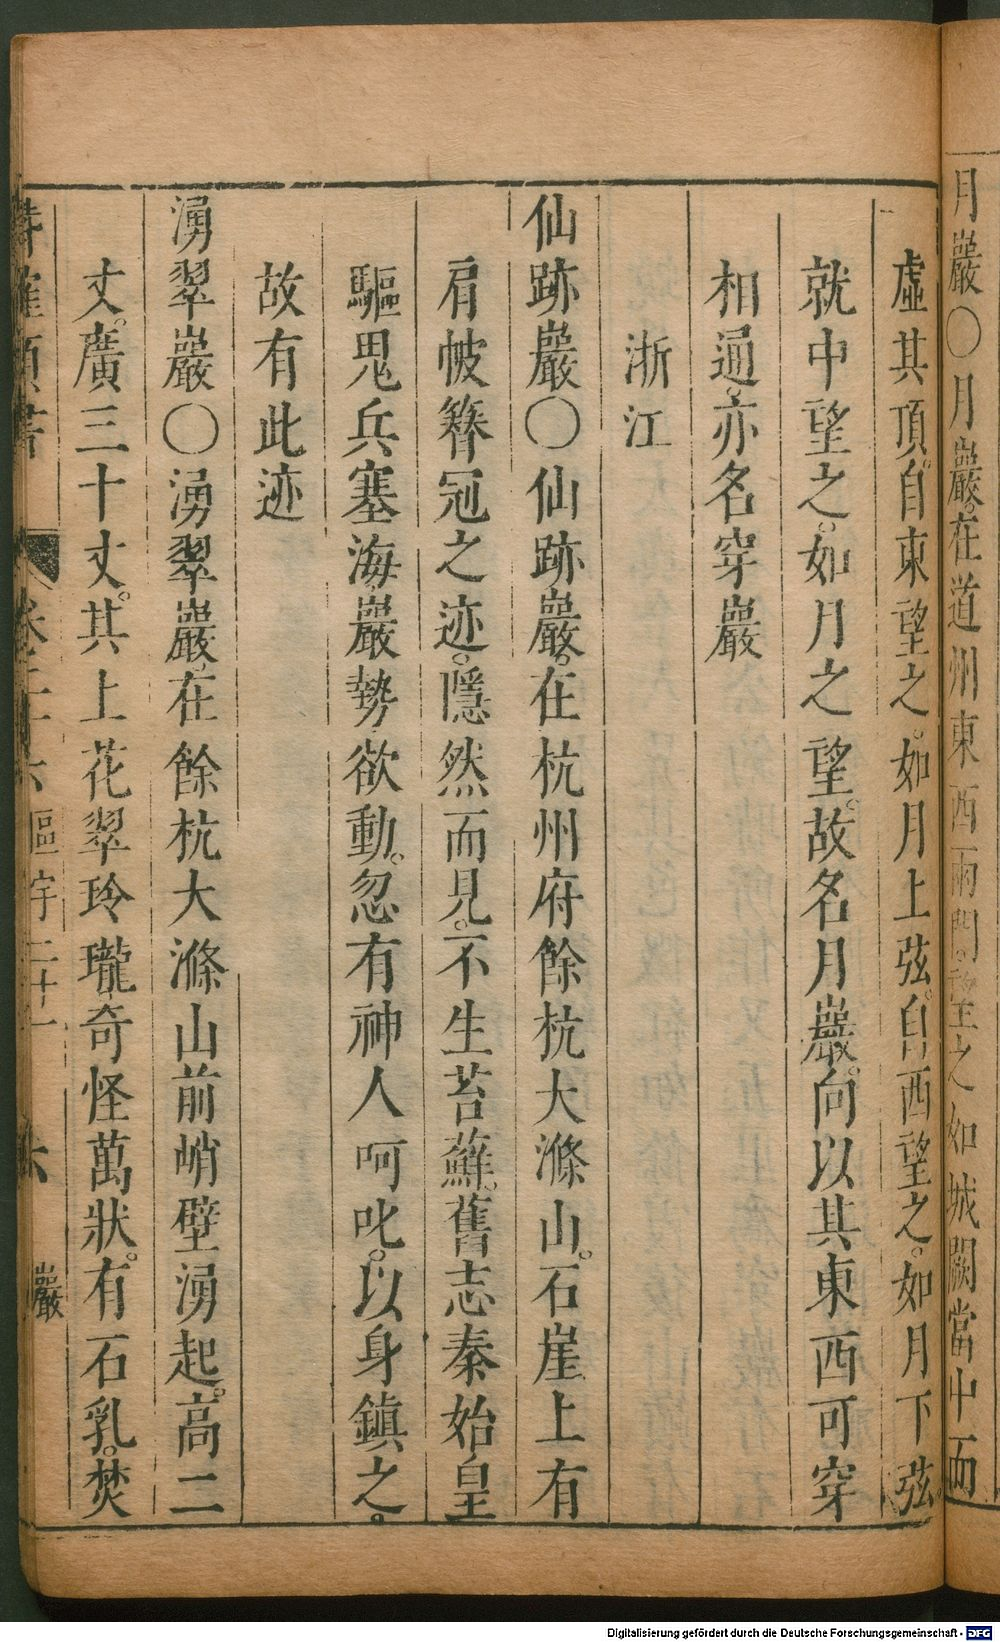 月巖〇月巖。在道州東西兩門。望之如城闕當中而
虛其頂。自東望之。如月上弦。自西望之。如月下弦。
就中望之。如月之望。故名月巖。向以其東西可穿
相通。亦名穿巖
浙江
仙跡巖〇仙跡巖。在杭州府餘杭大滌山。石崖上有
肩帔簪冠之迹。隱然而見。不生苔蘚。舊志秦始皇
驅鬼兵塞海。巖勢欲動。忽有神人呵叱。以身鎮之。
故有此迹
湧翠巖〇湧翠巖。在餘杭大滌山前峭壁湧起。高二
丈。廣三十丈。其上花翠玲瓏奇怪萬狀。有石乳。焚
巖
Digitalisierung gefördert durch die Deutsche Forschungsgemeinschaft - DFG